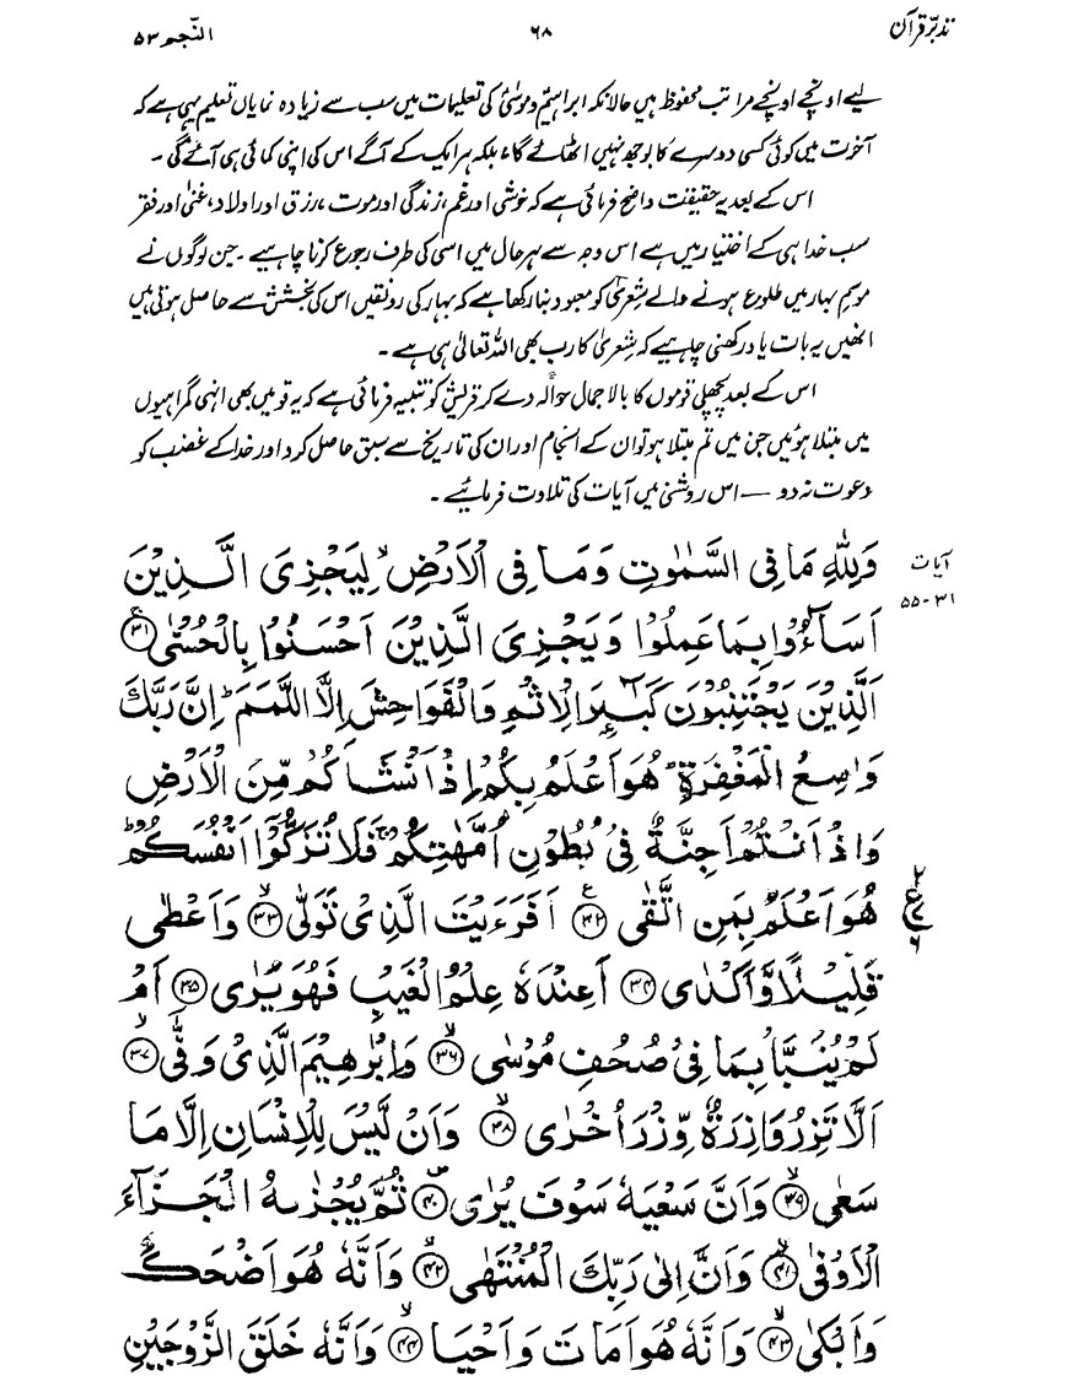 تدبّرِ قرآن ۶۸ النّجم ۵۳
لیے اونچے اونچے مراتب محفوظ ہیں حالانکہ ابراہیمؑ و موسیٰؑ کی تعلیمات میں سب سے زیادہ نمایاں تعلیم یہی ہے کہ
آخرت میں کوئی کسی دوسرے کا بوجھ نہیں اٹھائے گا، بلکہ ہر ایک کے آگے اس کی اپنی کمائی ہی آئے گی ۔
اس کے بعد یہ حقیقت واضح فرمائی ہے کہ خوشی اور غم، زندگی اور موت، رزق اور اولاد، غنیٰ اور فقر
سب خدا ہی کے اختیار میں ہے اس وجہ سے ہر حال میں اسی کی طرف رجوع کرنا چاہیے ۔ جن لوگوں نے
موسمِ بہار میں طلوع ہونے والے شِعریٰ کو معبود بنا رکھا ہے کہ بہار کی رونقیں اس کی بخشش سے حاصل ہوتی ہیں
انھیں یہ بات یاد رکھنی چاہیے کہ شِعریٰ کا رب بھی اللہ تعالیٰ ہی ہے ۔
اس کے بعد پچھلی قوموں کا بالاجمال حوالہ دے کر قریش کو تنبیہ فرمائی ہے کہ یہ قومیں بھی انہی گمراہیوں
میں مبتلا ہوئیں جن میں تم مبتلا ہو تو ان کے انجام اور ان کی تاریخ سے سبق حاصل کرو اور خدا کے غضب کو
دعوت نہ دو — اس روشنی میں آیات کی تلاوت فرمائیے ۔
آیات
۳۱-۵۵
وَلِلّٰهِ مَا فِی السَّمٰوٰتِ وَمَا فِی الْاَرْضِ ۙ لِیَجْزِیَ الَّذِیْنَ
اَسَآءُوْا بِمَا عَمِلُوْا وَیَجْزِیَ الَّذِیْنَ اَحْسَنُوْا بِالْحُسْنٰی ۚ ﴿۳۱﴾
اَلَّذِیْنَ یَجْتَنِبُوْنَ كَبٰٓئِرَ الْاِثْمِ وَالْفَوَاحِشَ اِلَّا اللَّمَمَ ؕ اِنَّ رَبَّكَ
وَاسِعُ الْمَغْفِرَةِ ؕ هُوَ اَعْلَمُ بِكُمْ اِذْ اَنْشَاَكُمْ مِّنَ الْاَرْضِ
وَاِذْ اَنْتُمْ اَجِنَّةٌ فِیْ بُطُوْنِ اُمَّهٰتِكُمْ ۚ فَلَا تُزَكُّوْۤا اَنْفُسَكُمْ ؕ
هُوَ اَعْلَمُ بِمَنِ اتَّقٰی ﴿۳۲﴾ ع اَفَرَءَیْتَ الَّذِیْ تَوَلّٰی ۙ ﴿۳۳﴾ وَاَعْطٰی
قَلِیْلًا وَّاَكْدٰی ﴿۳۴﴾ اَعِنْدَهٗ عِلْمُ الْغَیْبِ فَهُوَ یَرٰی ﴿۳۵﴾ اَمْ
لَمْ یُنَبَّاْ بِمَا فِیْ صُحُفِ مُوْسٰی ۙ ﴿۳۶﴾ وَاِبْرٰهِیْمَ الَّذِیْ وَفّٰۤی ۙ ﴿۳۷﴾
اَلَّا تَزِرُ وَازِرَةٌ وِّزْرَ اُخْرٰی ۙ ﴿۳۸﴾ وَاَنْ لَّیْسَ لِلْاِنْسَانِ اِلَّا مَا
سَعٰی ۙ ﴿۳۹﴾ وَاَنَّ سَعْیَهٗ سَوْفَ یُرٰی ﴿۴۰﴾ ثُمَّ یُجْزٰىهُ الْجَزَآءَ
الْاَوْفٰی ۙ ﴿۴۱﴾ وَاَنَّ اِلٰی رَبِّكَ الْمُنْتَهٰی ۙ ﴿۴۲﴾ وَاَنَّهٗ هُوَ اَضْحَكَ
وَاَبْكٰی ۙ ﴿۴۳﴾ وَاَنَّهٗ هُوَ اَمَاتَ وَاَحْیَا ۙ ﴿۴۴﴾ وَاَنَّهٗ خَلَقَ الزَّوْجَیْنِ